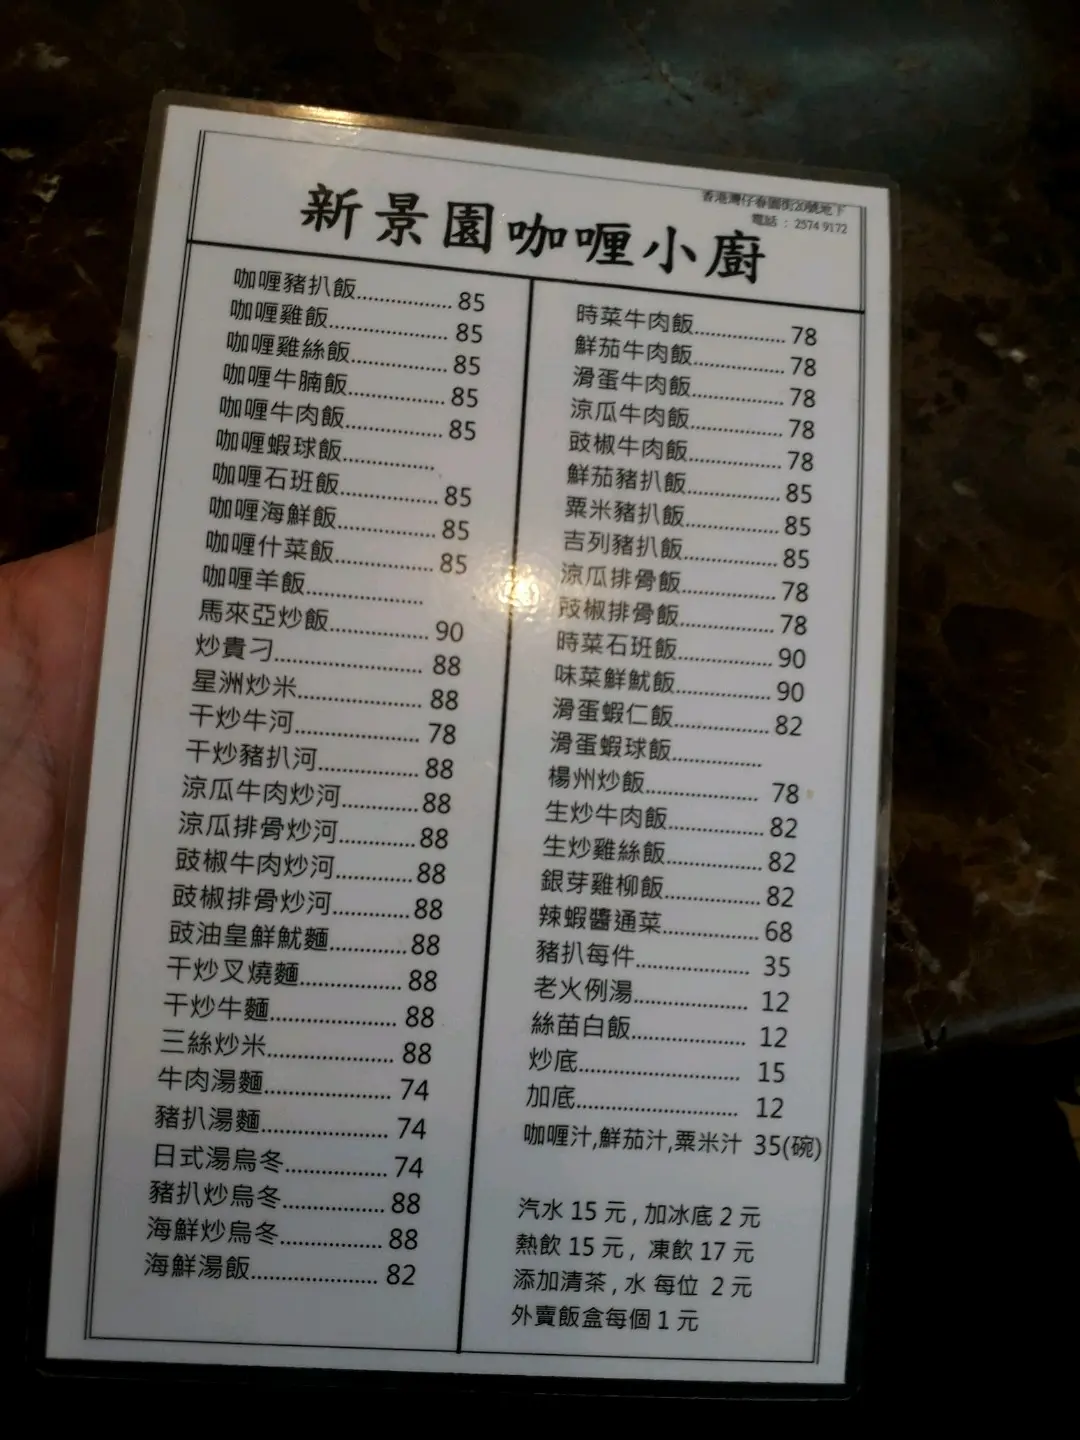 新景園咖喱小廚
香港灣仔春園街20號地下
電話 : 2574 9172
咖喱豬扒飯................ 85
咖喱雞飯.................... 85
咖喱雞絲飯................ 85
咖喱牛腩飯................ 85
咖喱牛肉飯................ 85
咖喱蝦球飯................
咖喱石班飯................ 85
咖喱海鮮飯................ 85
咖喱什菜飯................ 85
咖喱羊飯....................
馬來亞炒飯................ 90
炒貴刁........................ 88
星洲炒米.................... 88
干炒牛河.................... 78
干炒豬扒河................ 88
涼瓜牛肉炒河............. 88
涼瓜排骨炒河............. 88
豉椒牛肉炒河............. 88
豉椒排骨炒河............. 88
豉油皇鮮魷麵............. 88
干炒叉燒麵................ 88
干炒牛麵.................... 88
三絲炒米.................... 88
牛肉湯麵.................... 74
豬扒湯麵.................... 74
日式湯烏冬................ 74
豬扒炒烏冬................ 88
海鮮炒烏冬................ 88
海鮮湯飯.................... 82
時菜牛肉飯................ 78
鮮茄牛肉飯................ 78
滑蛋牛肉飯................ 78
涼瓜牛肉飯................ 78
豉椒牛肉飯................ 78
鮮茄豬扒飯................ 85
粟米豬扒飯................ 85
吉列豬扒飯................ 85
涼瓜排骨飯................ 78
豉椒排骨飯................ 78
時菜石班飯................ 90
味菜鮮魷飯................ 90
滑蛋蝦仁飯................ 82
滑蛋蝦球飯................
楊州炒飯.................... 78
生炒牛肉飯................ 82
生炒雞絲飯................ 82
銀芽雞柳飯................ 82
辣蝦醬通菜................ 68
豬扒每件.................... 35
老火例湯.................... 12
絲苗白飯.................... 12
炒底............................ 15
加底............................ 12
咖喱汁,鮮茄汁,粟米汁 35(碗)
汽水 15 元 , 加冰底 2 元
熱飲 15 元 , 凍飲 17 元
添加清茶 , 水 每位 2 元
外賣飯盒每個 1 元